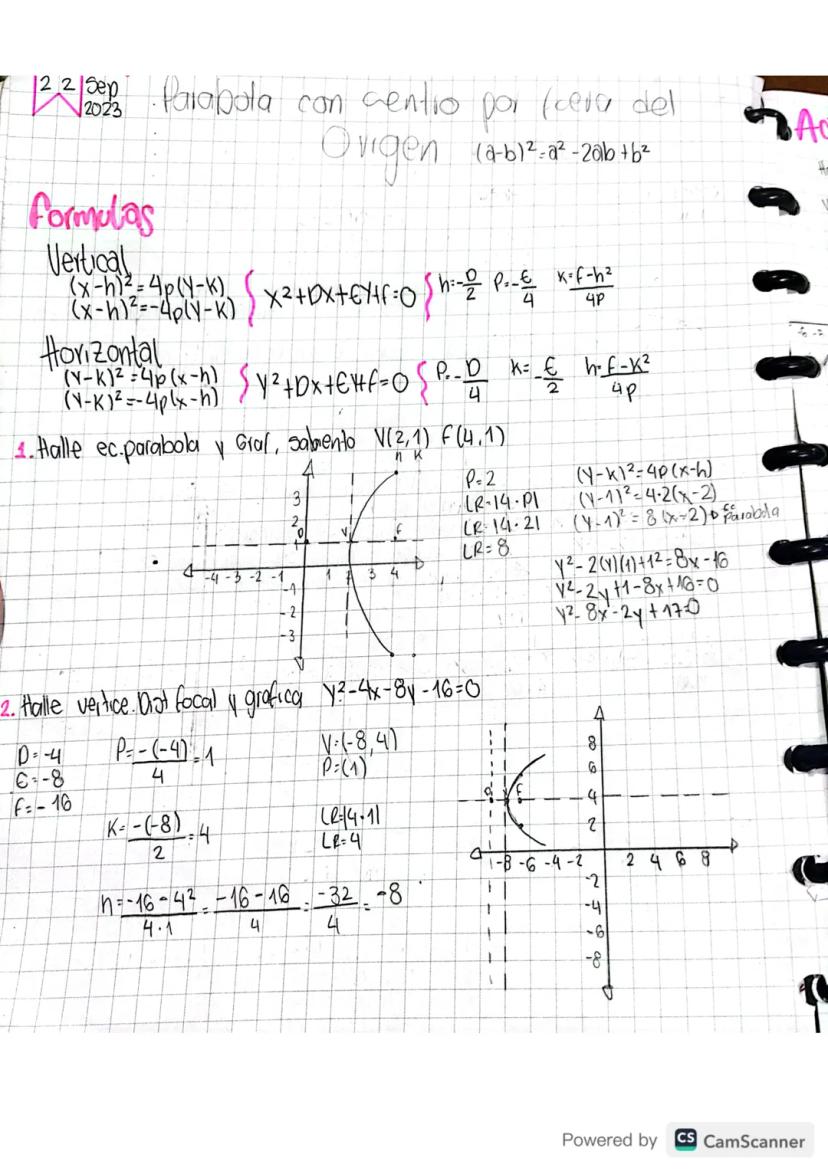 22 Sep
2023
Parabola con centro por fuera del
Origen (a-b)²=a²-2ab+b²
Formulas
Vertical
(x-h)²=4p(Y-K)
(x-h)²=-4p(Y-K)
X²+DX+EY+F=0
h=-D/2 P=-E/4 K=F-h²/4P
Horizontal
(Y-K)²=4p(x-h)
(Y-K)²=-4p(x-h)
Y²+Dx+EY+F=0
P=-D/4 K=-E/2 h=F-K²/4p
1. Halle ec. parabola y Gral, sabiento V(2,1) F(4,1)
h K
P=2
LR=|4·P|
LR=|4·2|
LR=8
(Y-K)²=4P(x-h)
(Y-1)²=4·2(x-2)
(Y-1)²=8(x-2) Ec parabola
Y²-2(Y)(1)+1²=8x-16
Y²-2y+1-8x+16=0
Y²-8x-2y+17=0
3
2
1
D
V
F
-4 -3 -2 -1 1 2 3 4
-1
-2
-3
2. Halle vertice. Dist focal y grafica Y²-4x-8y-16=0
D=-4
E=-8
F=-16
P=-(-4)/4=1
K=-(-8)/2=4
h=-16-4²/4·1=-16-16/4=-32/4=-8
V=(-8,4)
P=(1)
LR=|4·1|
LR=4
8
6
4
2
d
F
-8 -6 -4 -2 2 4 6 8
-2
-4
-6
-8
Powered by CS CamScanner